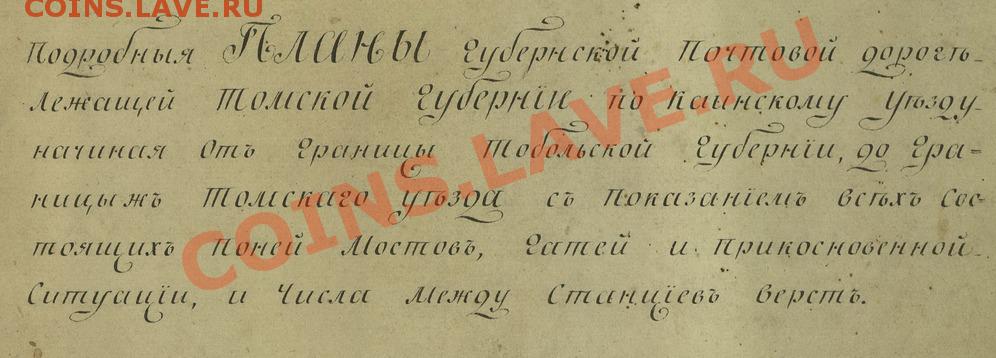 COINS.LAVE.RU
Подробныя ПЛАНЫ Губернской Почтовой дорогѣ
Лежащей Томской Губерніи по Каинскому Уѣзду
начиная Отъ Границы Тобольской Губерніи, до Гра=
ницыжъ Томскаго уѣзда съ показаніемъ всѣхъ Сос
тоящихъ поней Мостовъ, Гатей и прикосновенной
Ситуаціи, и Числа Между Станціевъ Верстъ.
COINS.LAVE.RU